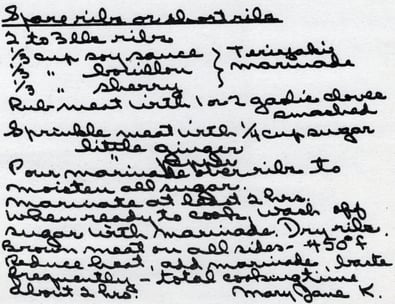 Spare ribs or short ribs
2 to 3 lbs ribs
1/3 cup soy sauce } Teriyaki
1/3 " bouillon } marinade
1/3 " sherry
Rub meat with 1 or 2 garlic cloves
smashed
Sprinkle meat with 1/4 cup sugar
little ginger
" pepper
Pour marinade over ribs to
moisten all sugar.
marinate at least 2 hrs.
When ready to cook, wash off
sugar with marinade. Dry ribs.
Brown meat on all sides - 450° f
Reduce heat, add marinade, baste
frequently - total cooking time
about 2 hrs. Mary Jane K.